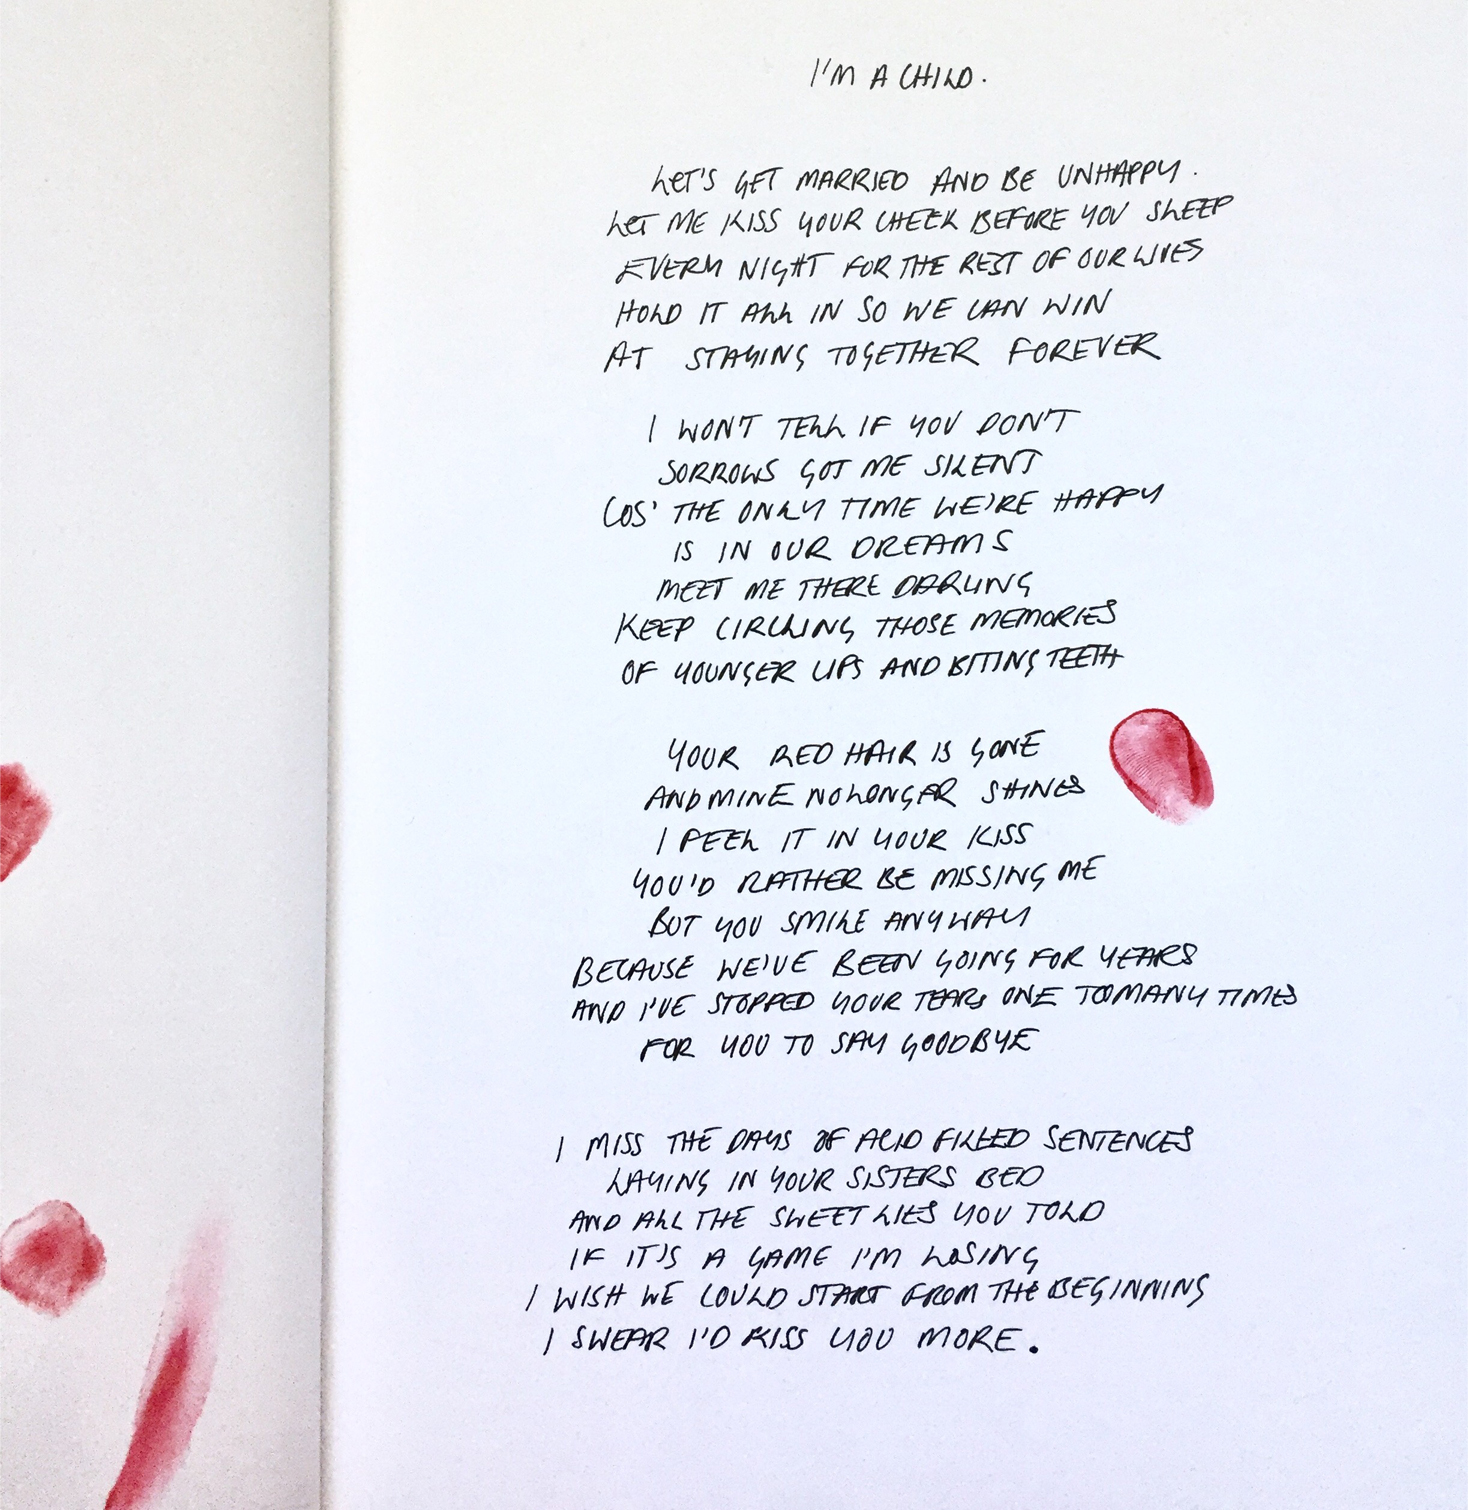 I'M A CHILD.
LET'S GET MARRIED AND BE UNHAPPY.
LET ME KISS YOUR CHEEK BEFORE YOU SLEEP
EVERY NIGHT FOR THE REST OF OUR LIVES
HOLD IT ALL IN SO WE CAN WIN
AT STAYING TOGETHER FOREVER
I WON'T TELL IF YOU DON'T
SORROWS GOT ME SILENT
COS' THE ONLY TIME WE'RE HAPPY
IS IN OUR DREAMS
MEET ME THERE DARLING
KEEP CIRCLING THOSE MEMORIES
OF YOUNGER LIPS AND BITING TEETH
YOUR RED HAIR IS GONE
AND MINE NO LONGER SHINES
I FEEL IT IN YOUR KISS
YOU'D RATHER BE MISSING ME
BUT YOU SMILE ANYWAY
BECAUSE WE'VE BEEN GOING FOR YEARS
AND I'VE STOPPED YOUR TEARS ONE TOO MANY TIMES
FOR YOU TO SAY GOODBYE
I MISS THE DAYS OF ACID FILLED SENTENCES
LAYING IN YOUR SISTERS BED
AND ALL THE SWEET LIES YOU TOLD
IF IT'S A GAME I'M LOSING
I WISH WE COULD START FROM THE BEGINNING
I SWEAR I'D KISS YOU MORE.